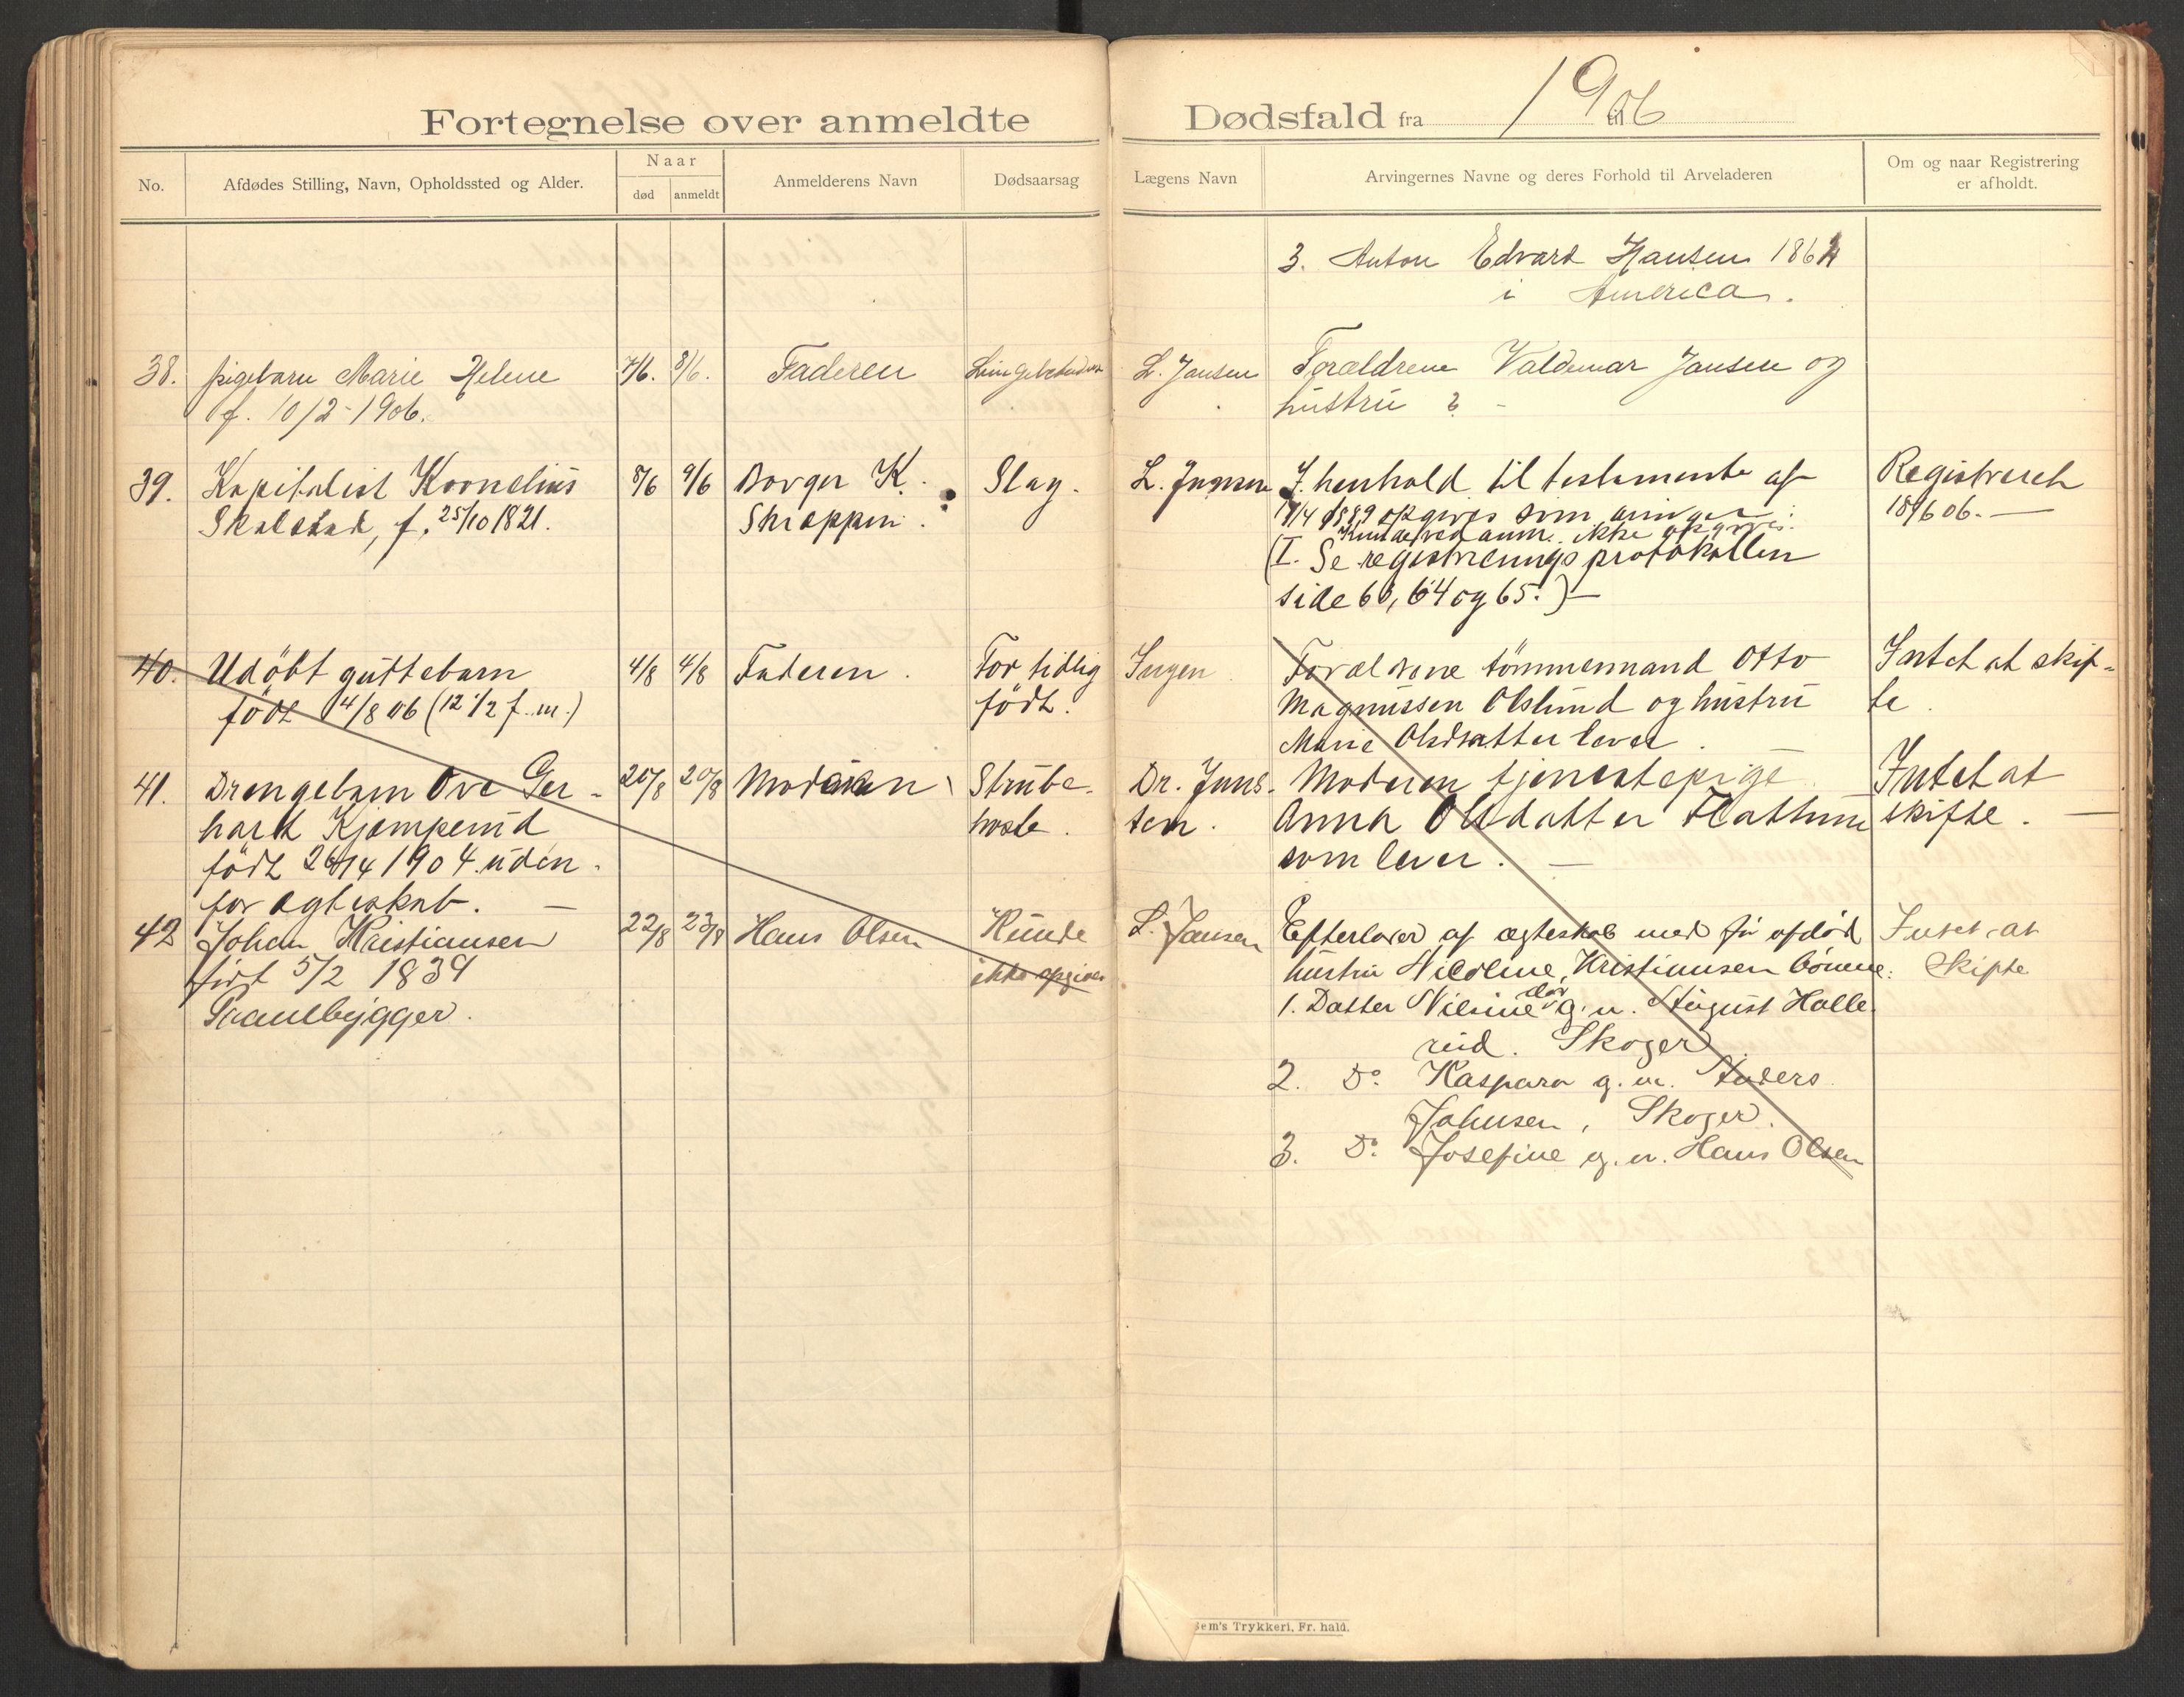 Fortegnelse over anmeldte Dødsfald fra 1906 til
No.
Afdødes Stilling, Navn, Opholdssted og Alder.
Naar
død
anmeldt
Anmelderens Navn
Dødsaarsag
Lægens Navn
Arvingernes Navne og deres Forhold til Arveladeren
Om og naar Registrering
er afholdt.
3. Anton Edvard Hansen 1864
i America.
38. pigebarn Marie Helene
f. 10/2-1906.
7/6. 8/6.
Faderen
L. Jansen
Forældrene Valdemar Jansen og
hustru ? -
39. Kapitalist Kornelius
Skalstad, f. 25/10 1821.
8/6 9/6
Borger K.
Skroppen.
Slag.
L. Jansen
I henhold til testamente af
17/4 1889 opgives som arvinger:
Kunde ved anm. ikke opgives.
(I. Se registreringsprotokollen
side 63, 64 og 65.) -
Registrereh
18/6 06. -
40. Udöbt guttebarn
födt 4/8 06 (12 1/2 f.m.)
4/8 4/8
Faderen.
For tidlig
födt.
Ingen
Forældrene tömmermand Otto
Magnussen Olslund og hustru
Marie Olsdatter lever. -
Intet at skif-
te.
41. Drengebarn Ove Ger-
hard Kjempenid
födt 26/4 1904 uden-
for ægteskab. -
20/8 20/8
Moderen
Strube-
hoste.
Dr. Juns-
ten.
Moderen tjenestepige
Anna Olsdatter
som lever. -
Intet at
skifte. -
42 Johan Kristiansen
født 5/2 1834
Praambygger.
22/8 23/8
Hans Olsen
Kunde
ikke opgives
L. Jansen
Efterlever af ægteskab med før afdød
hustru Nicoline Kristiansen börnene:
1. Datter Nilsine død g.m. August Holle-
rud. Skoger
2. Do Kaspara g.m. Anders
Johnsen, Skoger.
3. Do Josefine g.m. Hans Olsen
Intet at
Skifte
Sem's Trykkeri, Fr. hald.